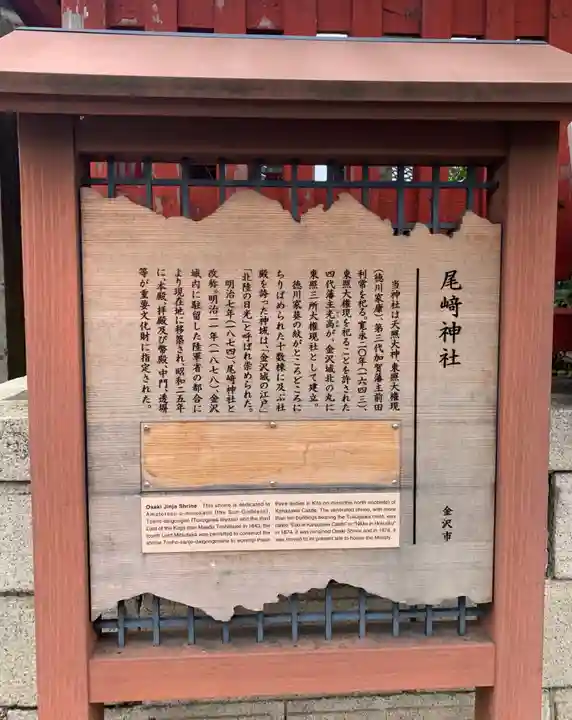 尾﨑神社
当神社は天照大神、東照大権現
(徳川家康)、第三代加賀藩主前田
利常を祀る。寛永二〇年(一六四三)、
東照大権現を祀ることを許された
四代藩主光高が、金沢城北の丸に
東照三所大権現社として建立。
徳川家葵の紋がところどころに
ちりばめられた十数棟に及ぶ社
殿を誇った神域は、「金沢城の江戸」
「北陸の日光」と呼ばれ崇められた。
明治七年(一八七四)、尾﨑神社と
改称。明治一一年(一八七八)、金沢
城内に駐留した陸軍省の都合に
より現在地に移築され、昭和二五年
に、本殿、拝殿及び幣殿、中門、透塀
等が重要文化財に指定された。
金沢市
Osaki Jinja Shrine This shrine is dedicated to
Amaterasu-o-mikami (the Sun Goddess),
Tosho-daigongen (Tokugawa Ieyasu) and the third
Lord of the Kaga clan Maeda Toshitsune. In 1643, the
fourth Lord Mitsutaka was permitted to construct the
shrine Tosho-sanjo-daigongensha to worship these
three deities in Kita-no-maru(the north enclosure) of
Kanazawa Castle. The venerated shrine, with more
than ten buildings bearing the Tokugawa crest, was
called "Edo in Kanazawa Castle" or "Nikko in Hokuriku".
In 1874, it was renamed Osaki Shrine and in 1878, it
was moved to its present site to house the Ministry.